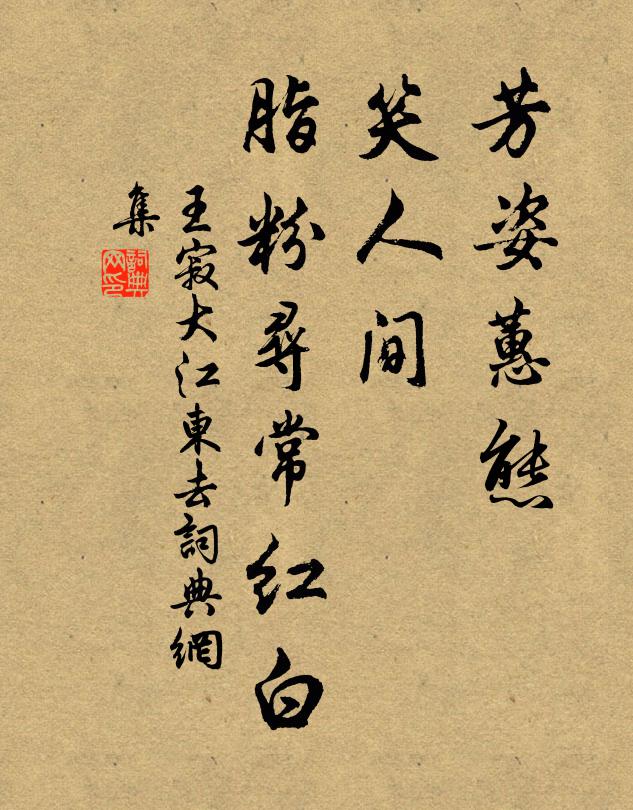 芳姿蕙態
笑人間
脂粉尋常紅白
王寂大江東去詞典網
集
詞典
网印